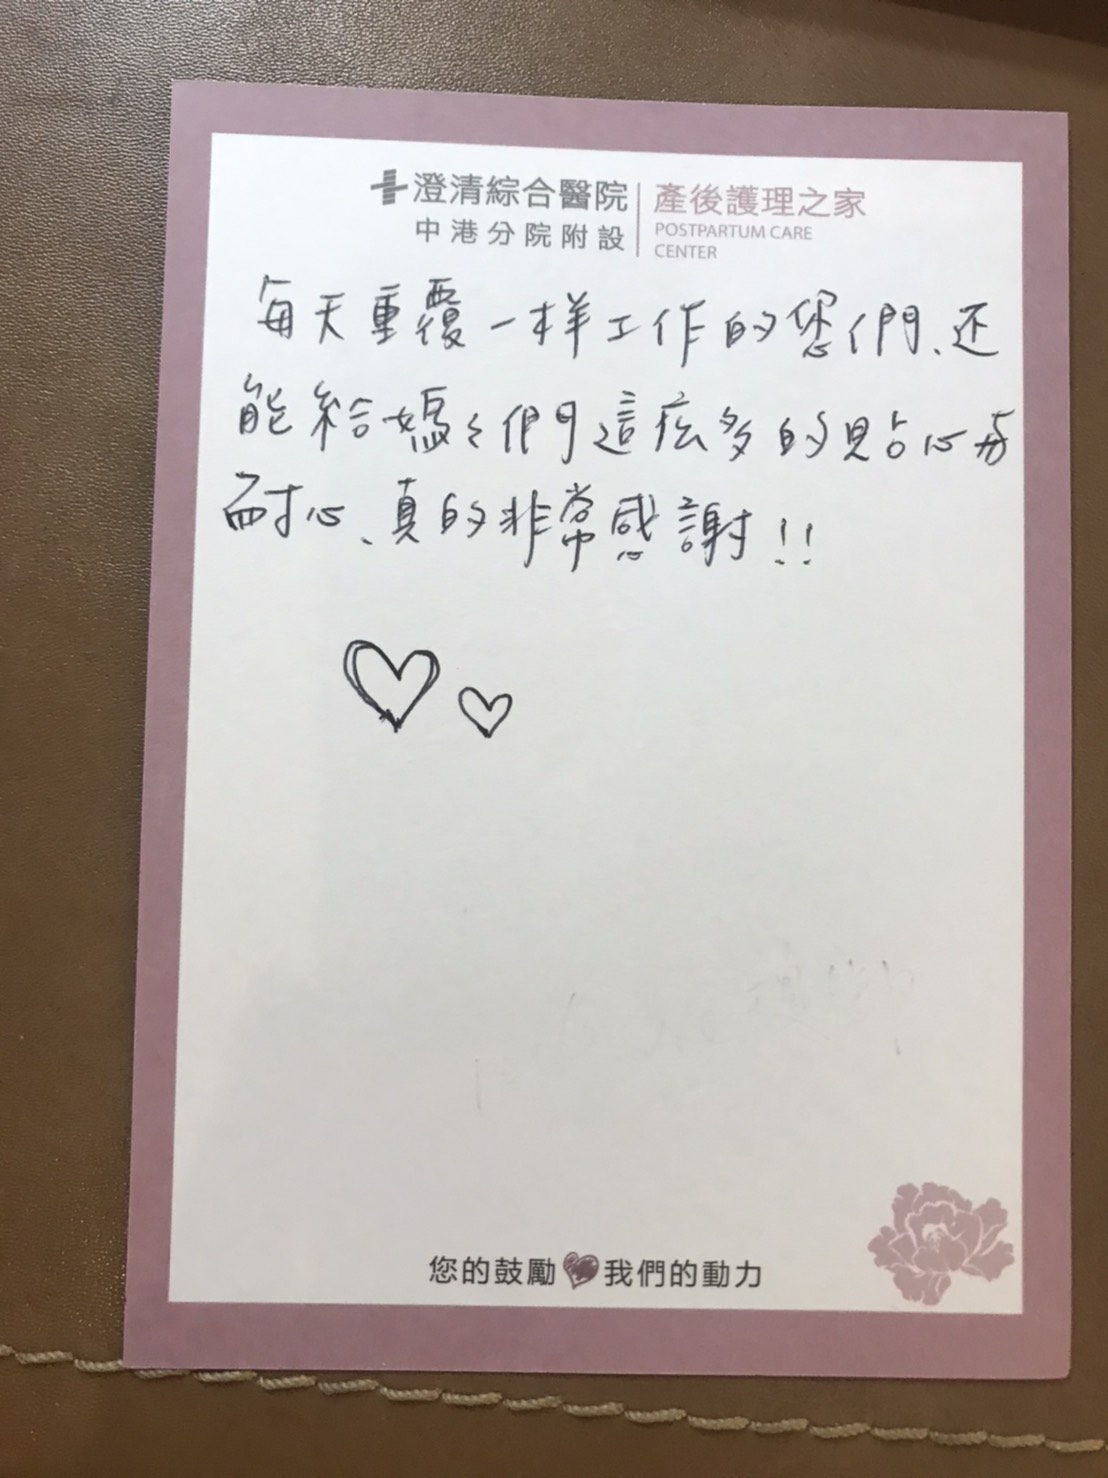 澄清綜合醫院
中港分院附設
產後護理之家
POSTPARTUM CARE
CENTER
每天重覆一样工作的您們、还
能給媽々們這広多的貼心与
耐心、真的非常感謝!!
您的鼓勵 我們的動力